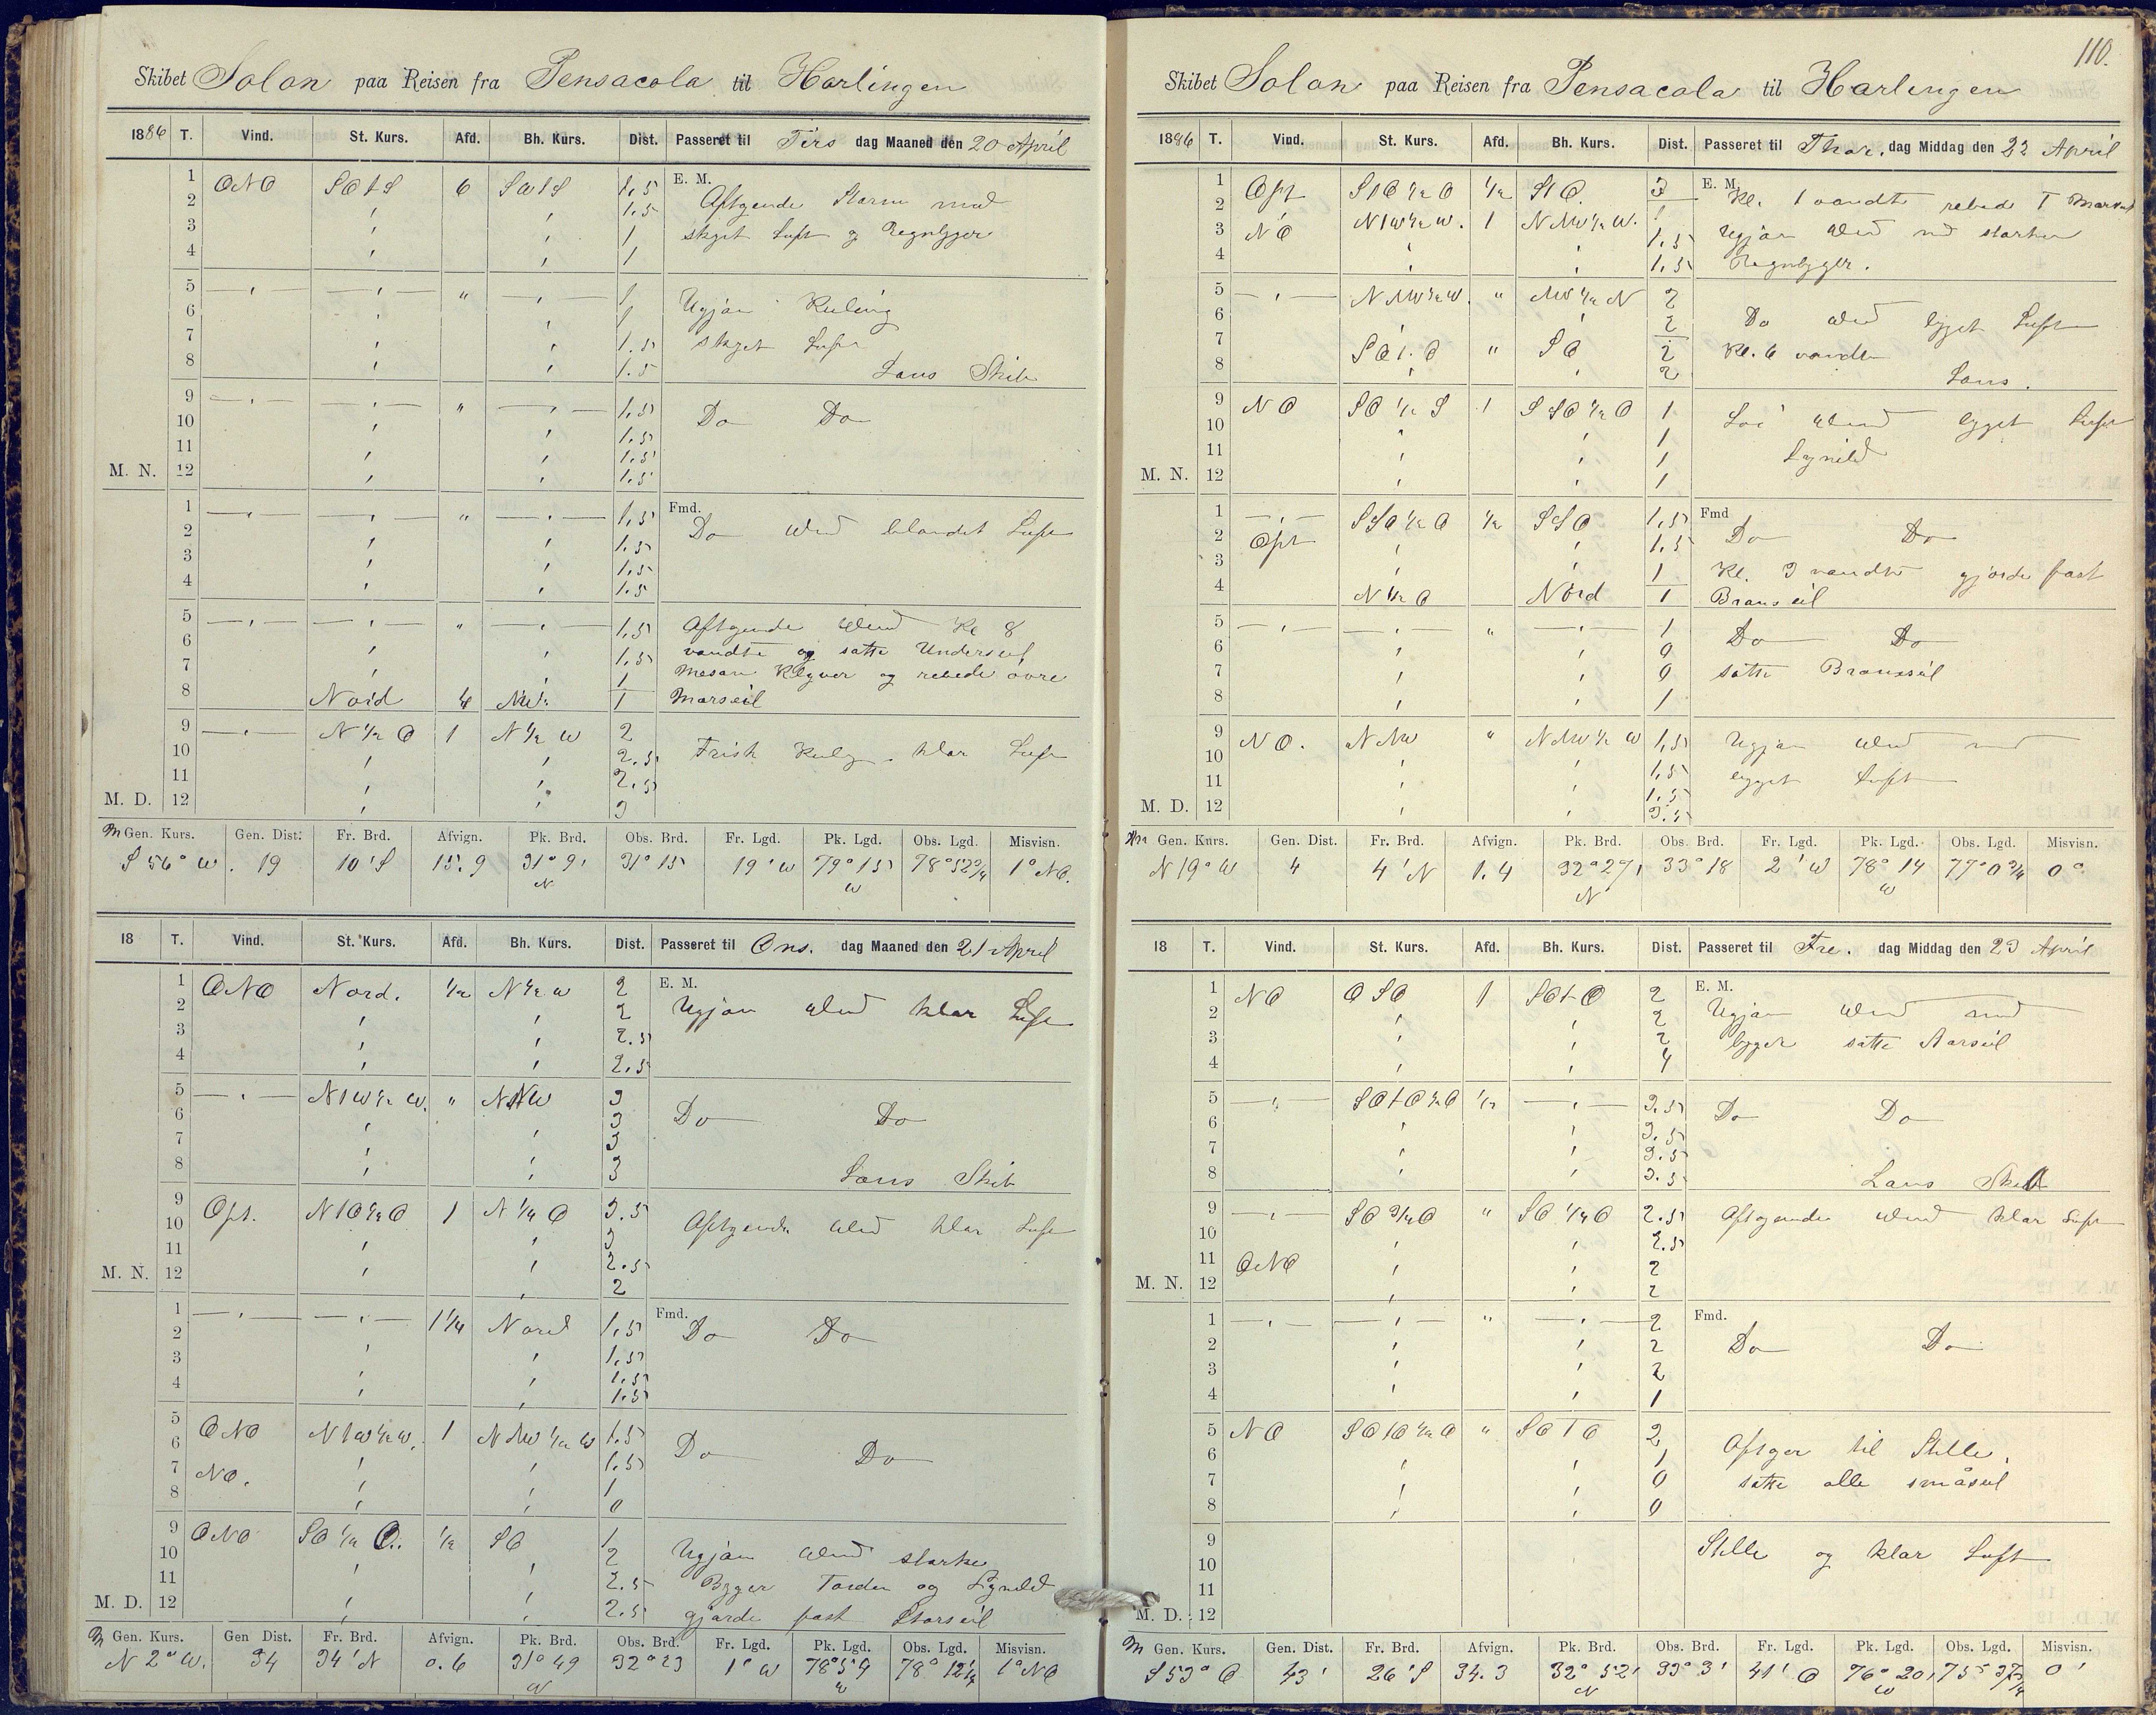 Skibet Solon paa Reisen fra Pensacola til Harlingen
1886 T. Vind. St. Kurs. Afd. Bh. Kurs. Dist. Passeret til Tirs dag Maaned den 20 April
1 ONO SOtS 6 SWtS 1,5 E. M.
2 1.5 Aftgende Storm med
3 1 skyet Luft og Regnbyger
4 1
5 1
6 1 Ugjan Kuling
7 1.5 skyet Luft
8 1.5 Lans Skib
9 1,5
10 1.5 Do Do
11 1.5
M. N. 12 1.5
1 1,5 Fmd.
2 1.5 Do Vind blandet Luft
3 1.5
4 1.5
5 1,5 Aftgende Vind Kl 8
6 1.5 vandte og satte Underseil
7 1 Mesan Klyver og rebede övre
8 Nord 1 Marseil
9 N 1/2 O 1 N 1/2 W 2
10 2.5 Frisk Kulg. klar Luft
11 2.5
M. D. 12 3
M Gen. Kurs. Gen. Dist. Fr. Brd. Afvign. Pk. Brd. Obs. Brd. Fr. Lgd. Pk. Lgd. Obs. Lgd. Misvisn.
S 56° W. 19 10' S 15.9 31° 9' N 31° 15 19' W 79° 15 W 78° 52 3/4 1° NO.
18 T. Vind. St. Kurs. Afd. Bh. Kurs. Dist. Passeret til Ons. dag Maaned den 21 April
1 ONO Nord. 1/2 N 1/2 W 2 E. M.
2 2 Ugjan Vind klar Luft
3 2.5
4 2.5
5 N1W 1/2 W. " NNW 3
6 3 Do Do
7 3
8 3 Lans Skib
9 Opt. N1O 1/2 O 1 N 1/4 O 3.5
10 3 Aftgende Vind klar Luft
11 2.5
M. N. 12 2
1 1 1/4 Nord 1,5 Fmd.
2 1,5 Do Do
3 1.5
4 1.5
5 ONO N1W 1/2 W. 1 NNW 1/2 W 1.5
6 1.5 Do Do
7 NO. 1
8 0
9 ONO SO 1/2 O. 1/2 SO 1
10 2 Ugjan Vind starke
11 2.5 Byger Torden og Lynild
M. D. 12 2.5 gjorde fast Storseil
M Gen. Kurs. Gen Dist. Fr. Brd. Afvign. Pk. Brd. Obs. Brd. Fr. Lgd. Pk. Lgd. Obs. Lgd. Misvisn.
N 2° W. 34 34' N 0.6 31° 49 N 32° 23 1° W 78° 54 W 78° 12 1/4 1° NO
110.
Skibet Solon paa Reisen fra Pensacola til Harlingen
1886 T. Vind. St. Kurs. Afd. Bh. Kurs. Dist. Passeret til Thor. dag Middag den 22 April
1 Opt S1O 1/2 O 1/2 S1O. 3 E. M. Kl. 1 vandt rebede
2 N1W 1/2 W. 1 NNW 1/2 W. 1
3 NO 1.5 Ugjan Vind md starke
4 1.5 Regnbyger.
5 NNW 1/2 W. " NW 1/2 N 2
6 2 Do Vind byget Luft
7 SO1.O " SO 2 Kl. 6 vandte
8 2 Lans.
9 NO SO 1/2 S 1 SSO 1/2 O 1
10 1 Löi Vind byget Luft
11 1 Lynild
M. N. 12 1
1 SSO 1/2 O 1/2 SSO 1,5 Fmd
2 Opt 1.5 Do Do
3 1 Kl. 3 vandte gjorde fast
4 N 1/2 O Nord 1 Bramseil
5 1 Do Do
6 0
7 0 satte Bramseil
8 1
9 NO. NNW " NNW 1/2 W 1,5 Ugjan Vind md
10 1,5 bygget Luft
11 1.5
M. D. 12 3.5
Gen. Kurs. Gen. Dist. Fr. Brd. Afvign. Pk. Brd. Obs. Brd. Fr. Lgd. Pk. Lgd. Obs. Lgd. Misvisn.
N 19° W 4 4' N 1.4 32° 27' N 33° 18 2' W 78° 14 W 77° 0 3/4 0°
18 T. Vind. St. Kurs. Afd. Bh. Kurs. Dist. Passeret til Fre. dag Middag den 23 April
1 NO OSO 1 SOtO 2 E. M.
2 2 Ugjan Vind md
3 2 byger satte Aarseil
4 4
5 SOtO 1/2 O 1/2 3.5
6 3.5 Do Do
7 3.5
8 3.5 Lans Skib
9 SO 3/4 O " SO 1/4 O 2.5 Aftgende Vind klar Luft
10 2.5
11 ONO 2
M. N. 12 2
1 " 2 Fmd.
2 2 Do Do
3 2
4 1
5 NO SO1O 1/2 O " SO1O 2
6 1 Aftger til Stille.
7 0 satte alle småseil
8 0
9 Stille og klar Luft
10
11
M. D. 12
M Gen. Kurs. Gen. Dist. Fr. Brd. Afvign. Pk. Brd. Obs. Brd. Fr. Lgd. Pk. Lgd. Obs. Lgd. Misvisn.
S 53° O 43' 26' S 34.3 32° 52' N 33° 3' 41' O 76° 20' W 75° 37 3/4 0'